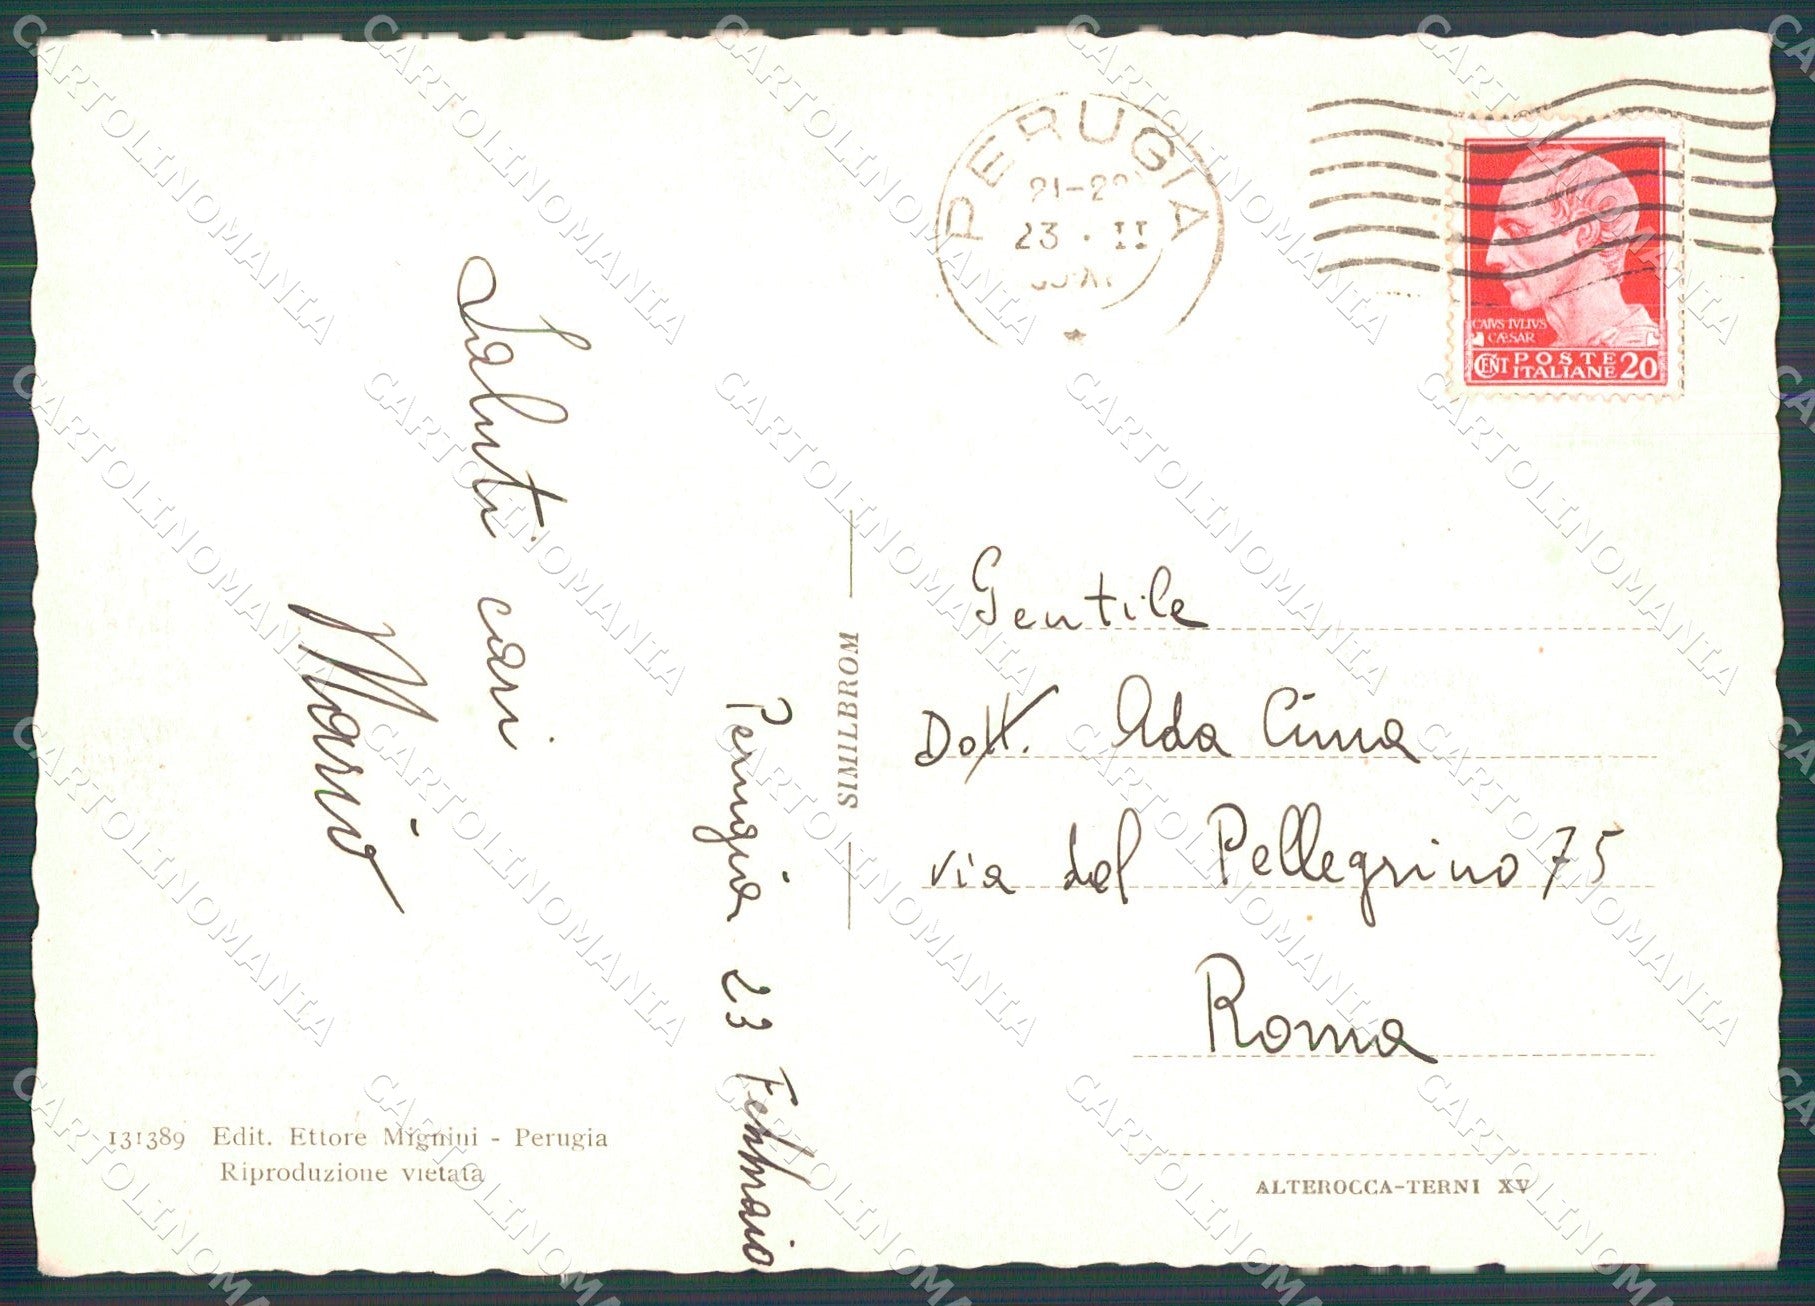 PERUGIA
23 · II
CAIVS IVLIVS
CÆSAR
CENT POSTE
ITALIANE 20
Saluti cari
Mario
Perugia 23 Febbraio
SIMILBROM
Gentile
Dott. Ada Cima
via del Pellegrino 75
Roma
131389 Edit. Ettore Mignini - Perugia
Riproduzione vietata
ALTEROCCA-TERNI XV
CARTOLINOMANIA